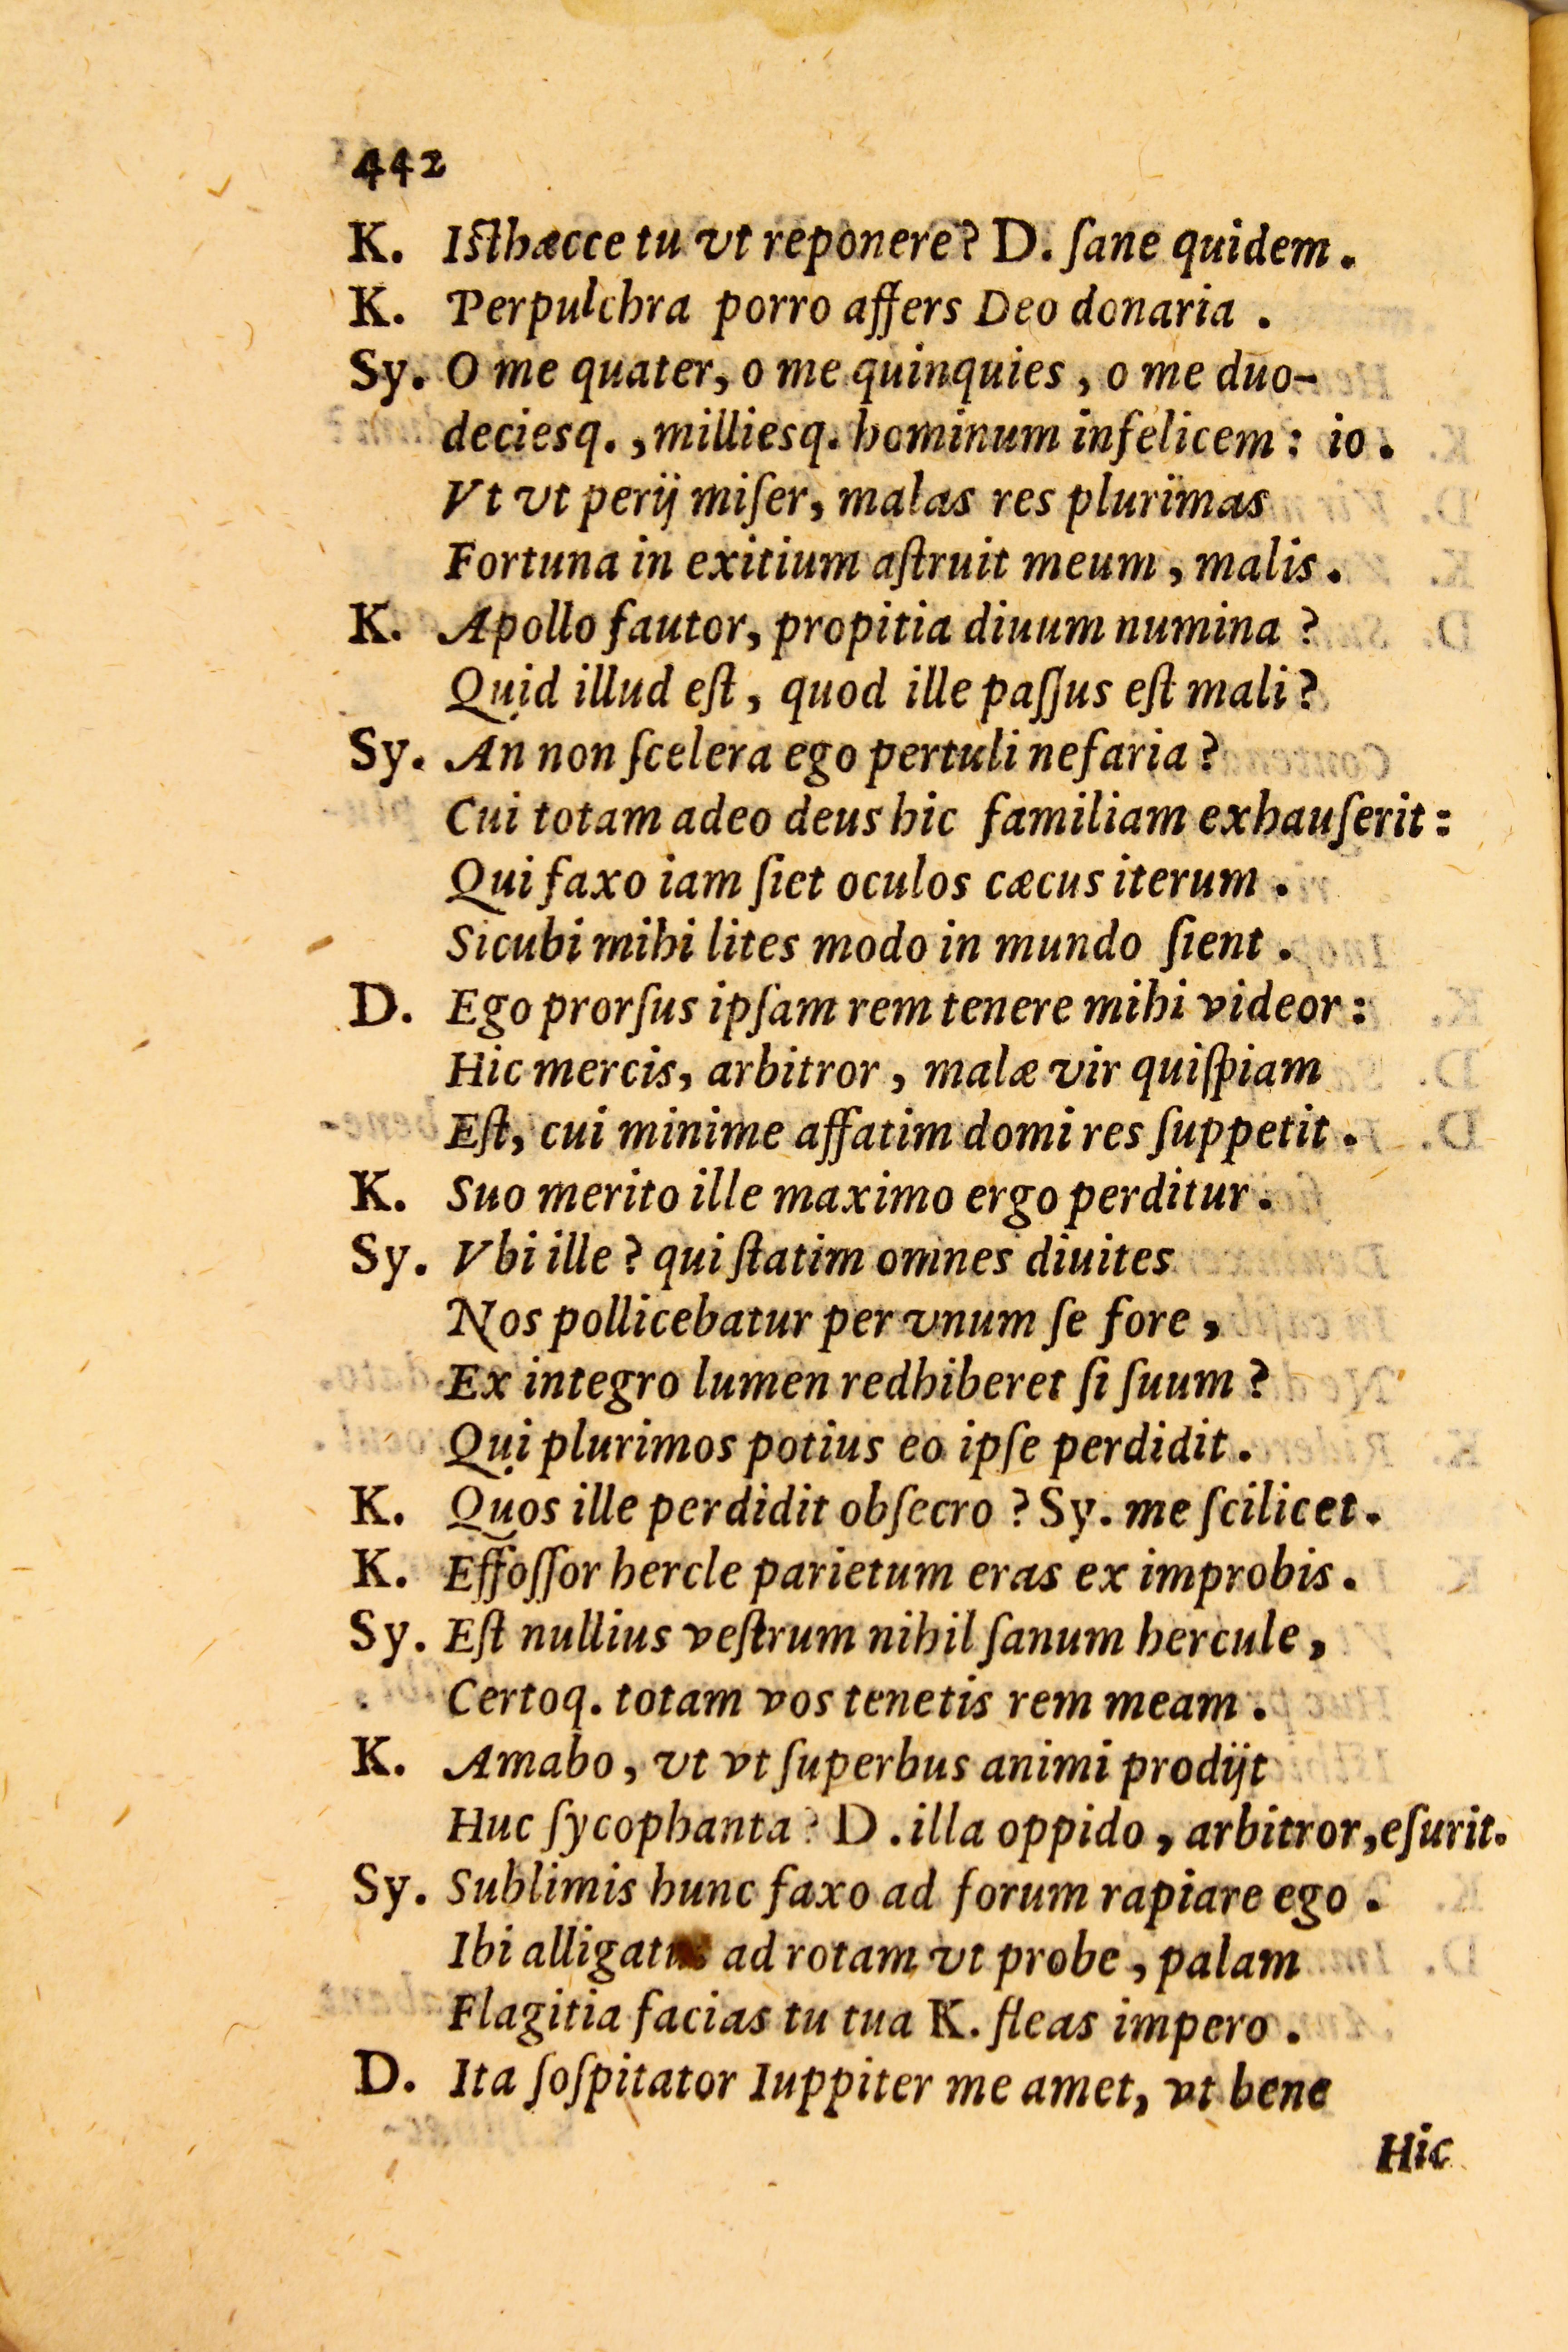 442
K. Iſthæcce tu vt reponere? D. ſane quidem.
K. Perpulchra porro affers Deo donaria .
Sy. O me quater, o me quinquies, o me duo-
deciesq., milliesq. hominum infelicem: io.
Vt vt perij miſer, malas res plurimas
Fortuna in exitium aſtruit meum, malis.
K. Apollo fautor, propitia diuum numina ?
Quid illud eſt, quod ille paſſus eſt mali?
Sy. An non ſcelera ego pertuli nefaria?
Cui totam adeo deus hic familiam exhauſerit:
Qui faxo iam ſiet oculos cæcus iterum.
Sicubi mihi lites modo in mundo ſient.
D. Ego prorſus ipſam rem tenere mihi videor:
Hic mercis, arbitror, malæ vir quiſpiam
Eſt, cui minime affatim domi res ſuppetit.
K. Suo merito ille maximo ergo perditur.
Sy. Vbi ille? qui ſtatim omnes diuites
Nos pollicebatur per vnum ſe fore,
Ex integro lumen redhiberet ſi ſuum?
Qui plurimos potius eo ipſe perdidit.
K. Quos ille perdidit obſecro? Sy. me ſcilicet.
K. Effoſſor hercle parietum eras ex improbis.
Sy. Eſt nullius veſtrum nihil ſanum hercule,
Certoq. totam vos tenetis rem meam.
K. Amabo, vt vt ſuperbus animi prodijt
Huc ſycophanta? D. illa oppido, arbitror, eſurit.
Sy. Sublimis hunc faxo ad forum rapiare ego.
Ibi ad rotam vt probe, palam
Flagitia facias tu tua K. fleas impero.
D. Ita ſoſpitator Iuppiter me amet, vt bene
Hic